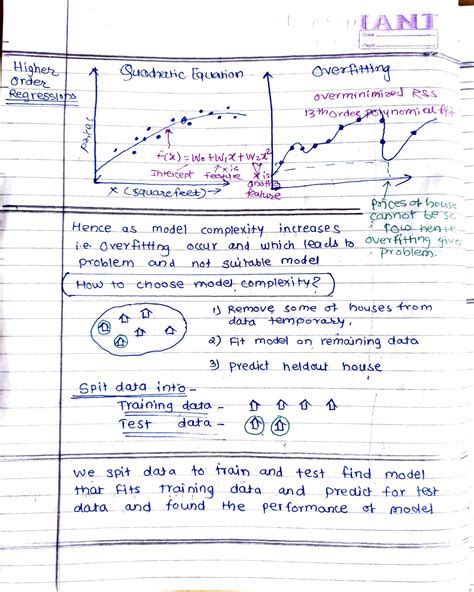 IANT
Date
Page
Higher
Order
Regressions
Quadratic Equation
Overfitting
overminimized RSS
13th Order Polynomial fit
f(x) = W0 + W1x + W2x²
Intercept
x is
feature
x is
another
feature
x (square feet) →
Prices of house
cannot be so
low hence
overfitting give
problem.
Hence as model complexity increases
i.e. Overfitting occur and which leads to
problem and not suitable model
How to choose model complexity?
1) Remove some of houses from
data temporary,
2) Fit model on remaining data
3) predict heldout house
Spit data into -
Training data -
Test data -
we spit data to train and test find model
that fits training data and predict for test
data and found the performance of model